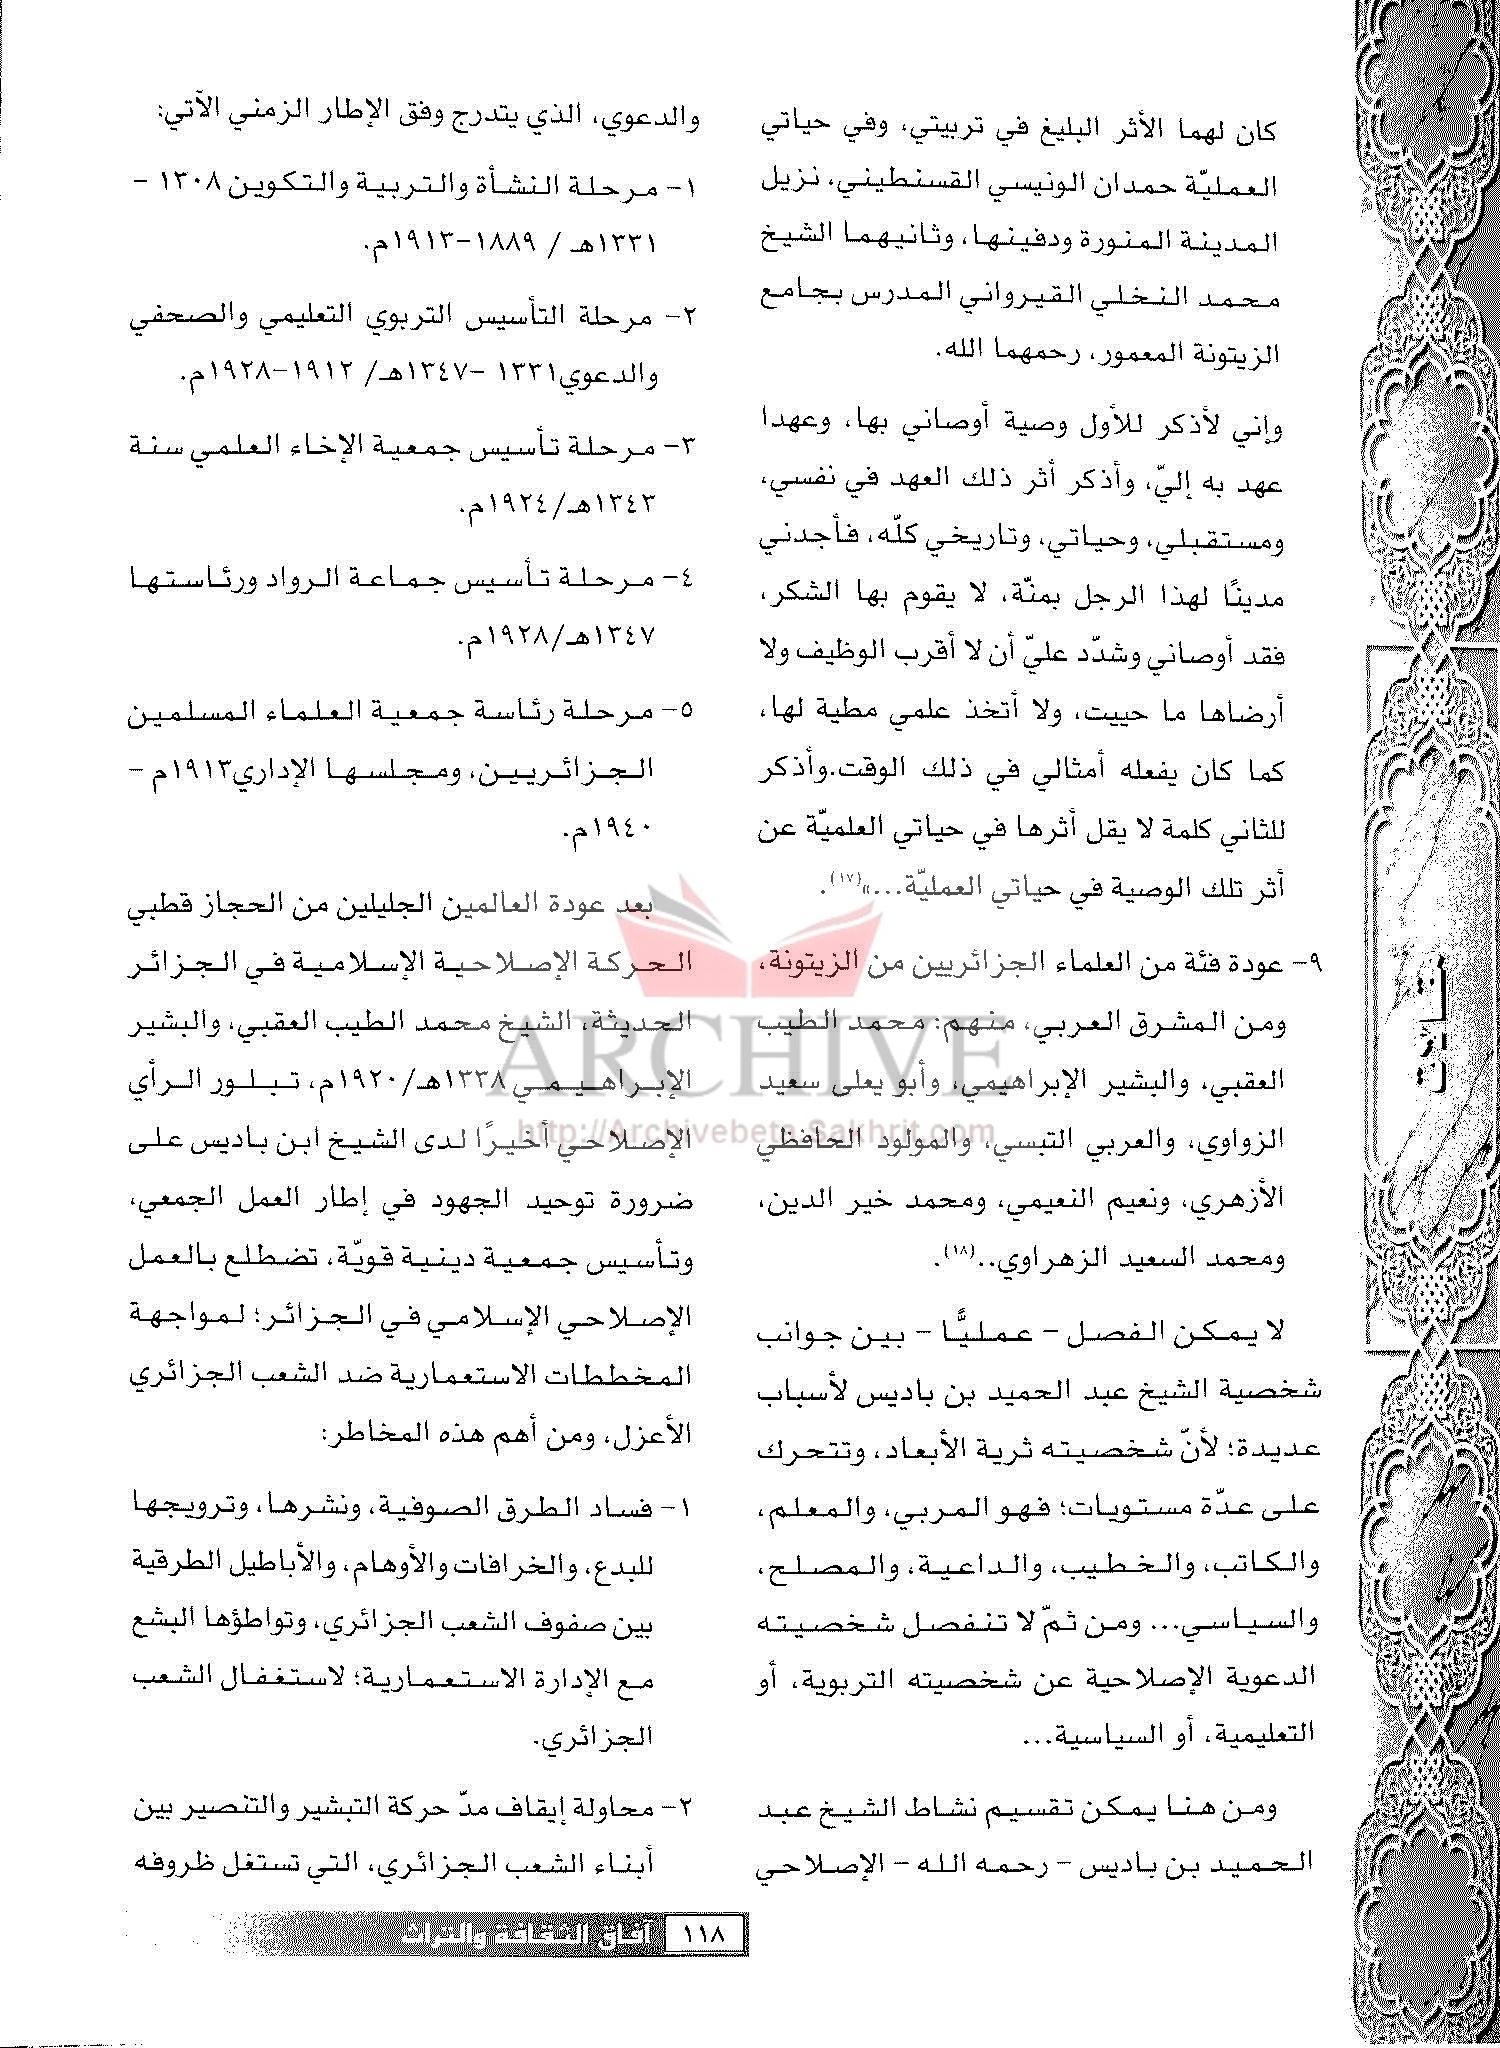 كان لهما الأثر البليغ في تربيتي، وفي حياتي
العمليّة حمدان الونيسي القسنطيني، نزيل
المدينة المنورة ودفينها، وثانيهما الشيخ
محمد النخلي القيرواني المدرس بجامع
الزيتونة المعمور، رحمهما الله.
وإني لأذكر للأول وصية أوصاني بها، وعهدا
عهد به إليّ، وأذكر أثر ذلك العهد في نفسي،
ومستقبلي، وحياتي، وتاريخي كلّه، فأجدني
مدينًا لهذا الرجل بمنّة، لا يقوم بها الشكر،
فقد أوصاني وشدّد عليّ أن لا أقرب الوظيف ولا
أرضاها ما حييت، ولا أتخذ علمي مطية لها،
كما كان يفعله أمثالي في ذلك الوقت.وأذكر
للثاني كلمة لا يقل أثرها في حياتي العلميّة عن
أثر تلك الوصية في حياتي العمليّة...»(١٧).
٩- عودة فئة من العلماء الجزائريين من الزيتونة،
ومن المشرق العربي، منهم: محمد الطيب
العقبي، والبشير الإبراهيمي، وأبو يعلى سعيد
الزواوي، والعربي التبسي، والمولود الحافظي
الأزهري، ونعيم النعيمي، ومحمد خير الدين،
ومحمد السعيد الزهراوي..(١٨).
لا يمكن الفصل - عمليًّا - بين جوانب
شخصية الشيخ عبد الحميد بن باديس لأسباب
عديدة؛ لأنّ شخصيته ثرية الأبعاد، وتتحرك
على عدّة مستويات؛ فهو المربي، والمعلم،
والكاتب، والخطيب، والداعية، والمصلح،
والسياسي... ومن ثمّ لا تنفصل شخصيته
الدعوية الإصلاحية عن شخصيته التربوية، أو
التعليمية، أو السياسية...
ومن هنا يمكن تقسيم نشاط الشيخ عبد
الحميد بن باديس - رحمه الله - الإصلاحي
والدعوي، الذي يتدرج وفق الإطار الزمني الآتي:
١- مرحلة النشأة والتربية والتكوين ١٣٠٨ -
١٣٣١هـ / ١٨٨٩-١٩١٣م.
٢- مرحلة التأسيس التربوي التعليمي والصحفي
والدعوي١٣٣١ -١٣٤٧هـ/ ١٩١٢-١٩٢٨م.
٣- مرحلة تأسيس جمعية الإخاء العلمي سنة
١٣٤٣هـ/١٩٢٤م.
٤- مرحلة تأسيس جماعة الرواد ورئاستها
١٣٤٧هـ/١٩٢٨م.
٥- مرحلة رئاسة جمعية العلماء المسلمين
الجزائريين، ومجلسها الإداري١٩١٣م -
١٩٤٠م.
بعد عودة العالمين الجليلين من الحجاز قطبي
الحركة الإصلاحية الإسلامية في الجزائر
الحديثة، الشيخ محمد الطيب العقبي، والبشير
الإبراهيمي ١٣٣٨هـ/١٩٢٠م، تبلور الرأي
الإصلاحي أخيرًا لدى الشيخ ابن باديس على
ضرورة توحيد الجهود في إطار العمل الجمعي،
وتأسيس جمعية دينية قويّة، تضطلع بالعمل
الإصلاحي الإسلامي في الجزائر؛ لمواجهة
المخططات الاستعمارية ضد الشعب الجزائري
الأعزل، ومن أهم هذه المخاطر:
١- فساد الطرق الصوفية، ونشرها، وترويجها
للبدع، والخرافات والأوهام، والأباطيل الطرقية
بين صفوف الشعب الجزائري، وتواطؤها البشع
مع الإدارة الاستعمارية؛ لاستغفال الشعب
الجزائري.
٢- محاولة إيقاف مدّ حركة التبشير والتنصير بين
أبناء الشعب الجزائري، التي تستغل ظروفه
مقالات
ARCHIVE
http://Archivebeta.Sakhrit.com
١١٨ آفاق الثقافة والتراث